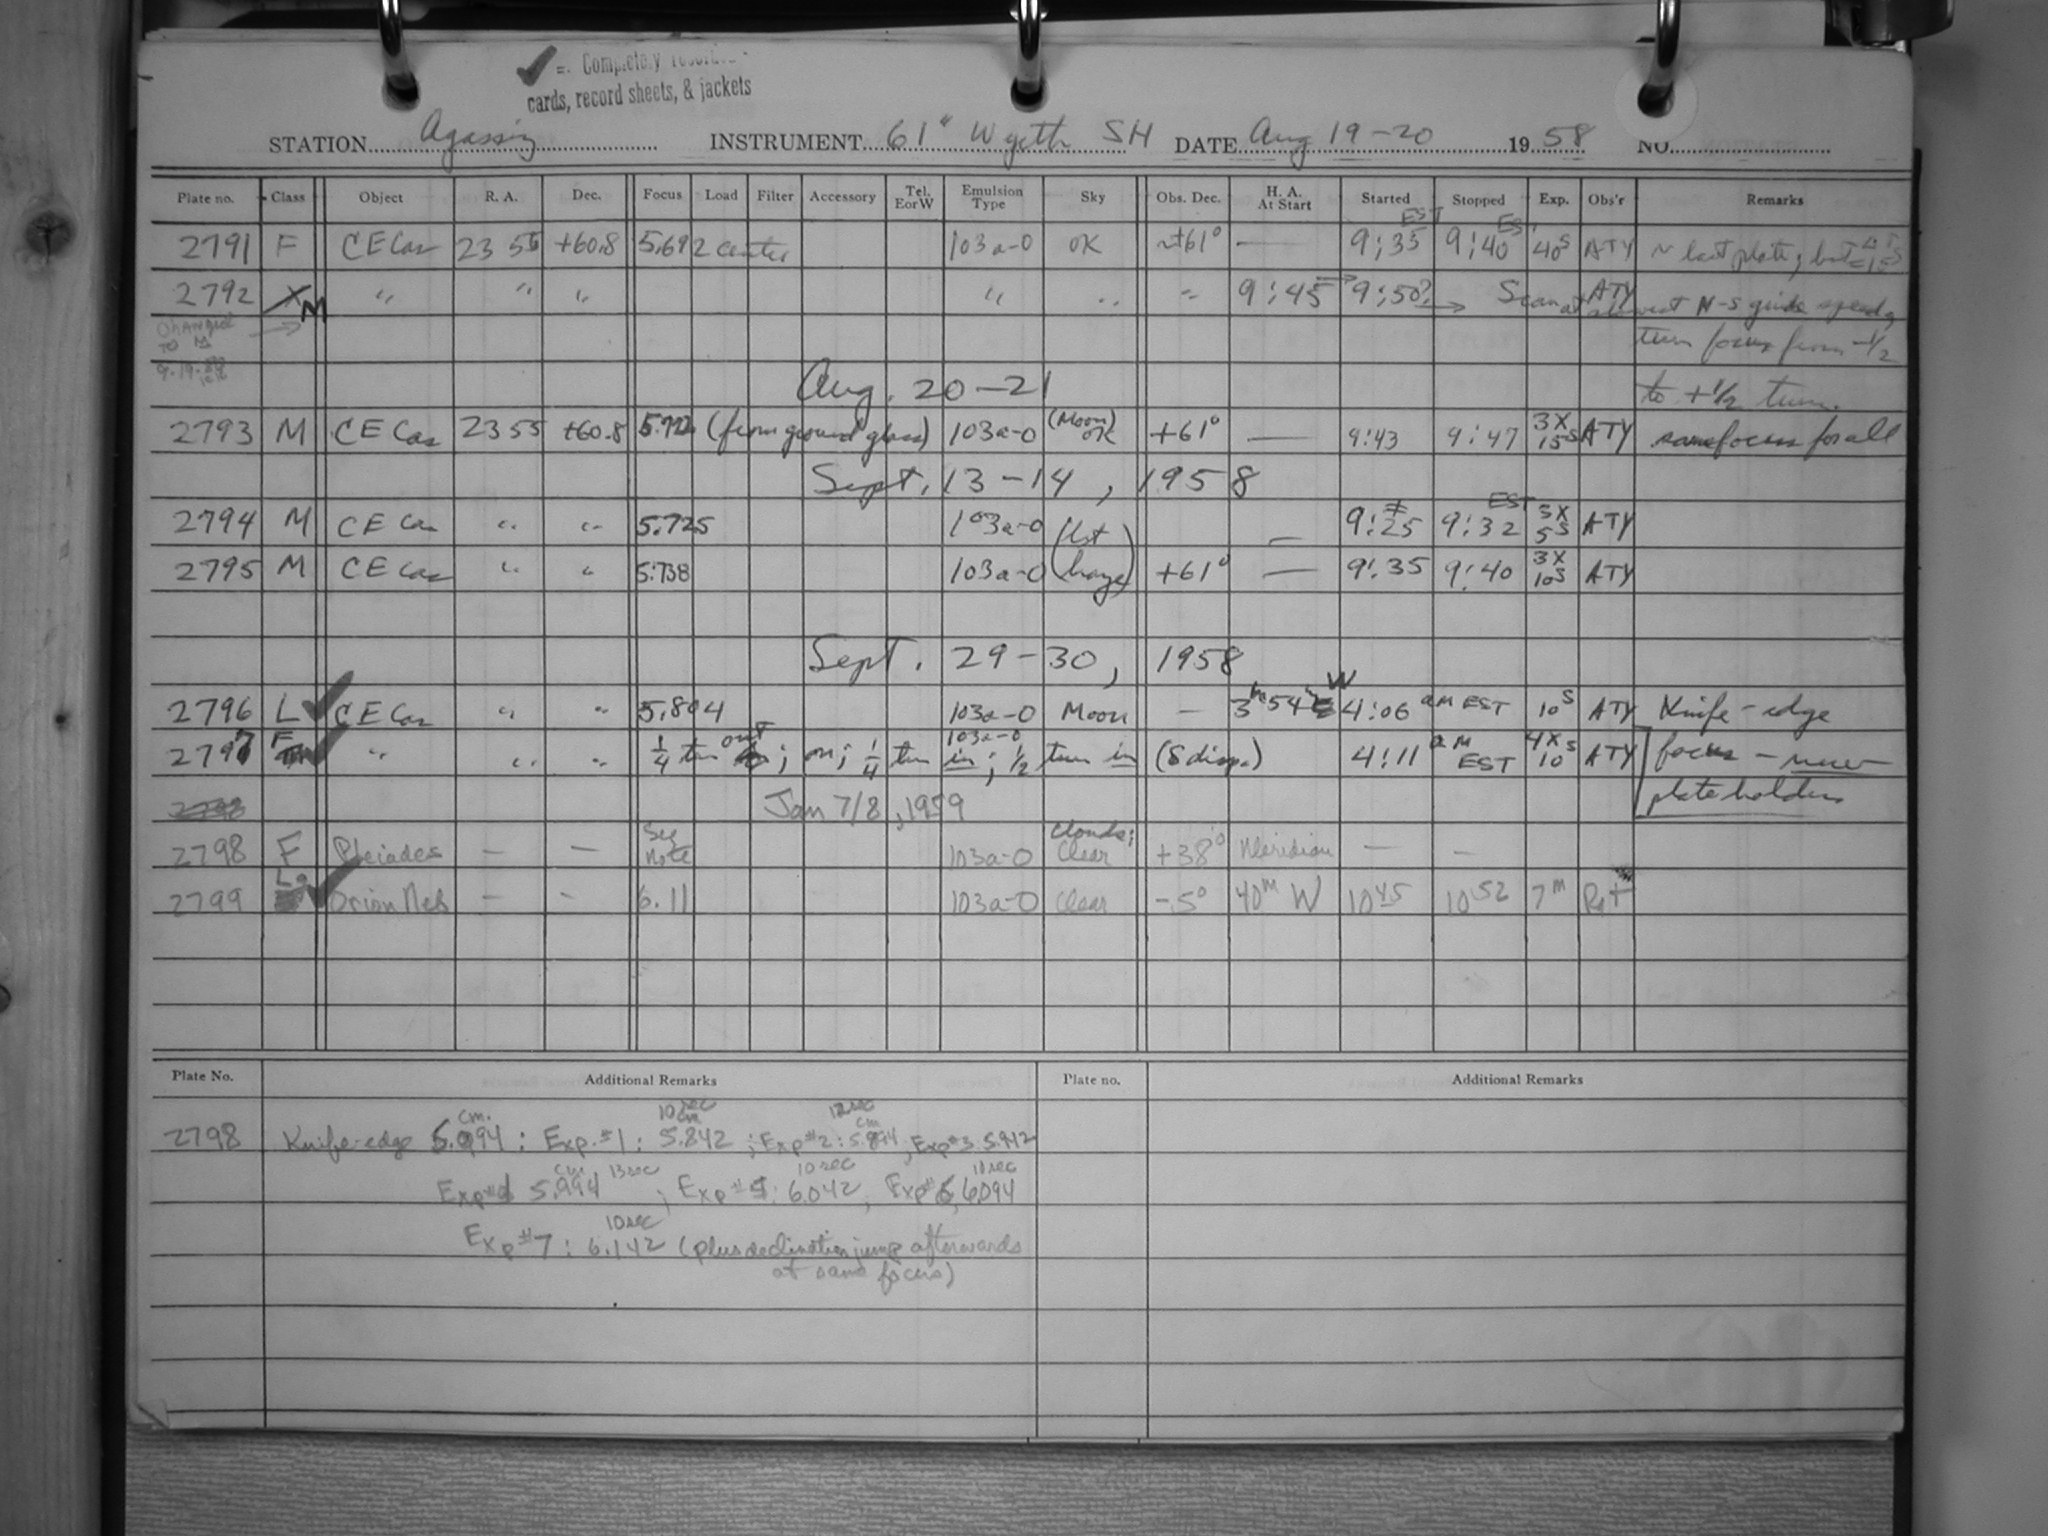 ✓ = Completely
cards, record sheets, & jackets
STATION Agassiz INSTRUMENT 61" Wyeth SH DATE Aug 19-20 1958 NO.
Plate no. Class Object R. A. Dec. Focus Load Filter Accessory Tel. E or W Emulsion Type Sky Obs. Dec. H. A. At Start Started Stopped Exp. Obs'r Remarks
EST EST
2791 F CE Cas 23 55 +60.8 5.692 center 103a-O OK ~+61° — 9:35 9:40 40s ATY ~ last plate; but
2792 X M " " " " " " 9:45 → 9:50? → Scan at slowest N-S guide speed, ATY
Changed to M →
turn focus from -1/2
Aug. 20-21
to +1/2 turn.
2793 M CE Cas 23 55 +60.8 (from ground glass) 103a-O (Moon) OK +61° — 9:43 9:47 3X 15s ATY same focus for all
Sept. 13-14, 1958
2794 M CE Cas " " 5.725 103a-O — 9:25 9:32 EST 5s ATY
2795 M CE Cas " " 5.738 103a-O +61° — 9:35 9:40 3X 10s ATY
Sept. 29-30, 1958
2796 L ✓ CE Cas " " 5.804 103a-O Moon — 3h 54m W 4:06 am EST 10s ATY Knife-edge
2797 F ✓ " " " 1/4 turn out; on; 1/4 turn in; 1/2 turn in 103a-O (5 disp.) 4:11 am EST 4X 10s ATY focus - new
plateholders
2798
Jan 7/8, 1959
2798 F Pleiades — — See note 103a-O Clouds; Clear +38° Meridian — —
2799 L ✓ Orion Neb — — 6.11 103a-O Clear -5° 40m W 10 45 10 52 7m
Plate No. Additional Remarks Plate no. Additional Remarks
2798 Knife-edge 5.994 cm. : Exp. #1: 5.842 cm 10 sec; Exp #2: 5.894 cm 12 sec, Exp #3 5.942
Exp #4 5.994 cm 13 sec; Exp #5: 6.042 10 sec, Exp #6 6.094 11 sec
Exp #7: 6.142 10 sec (plus declination jump afterwards
at same focus)